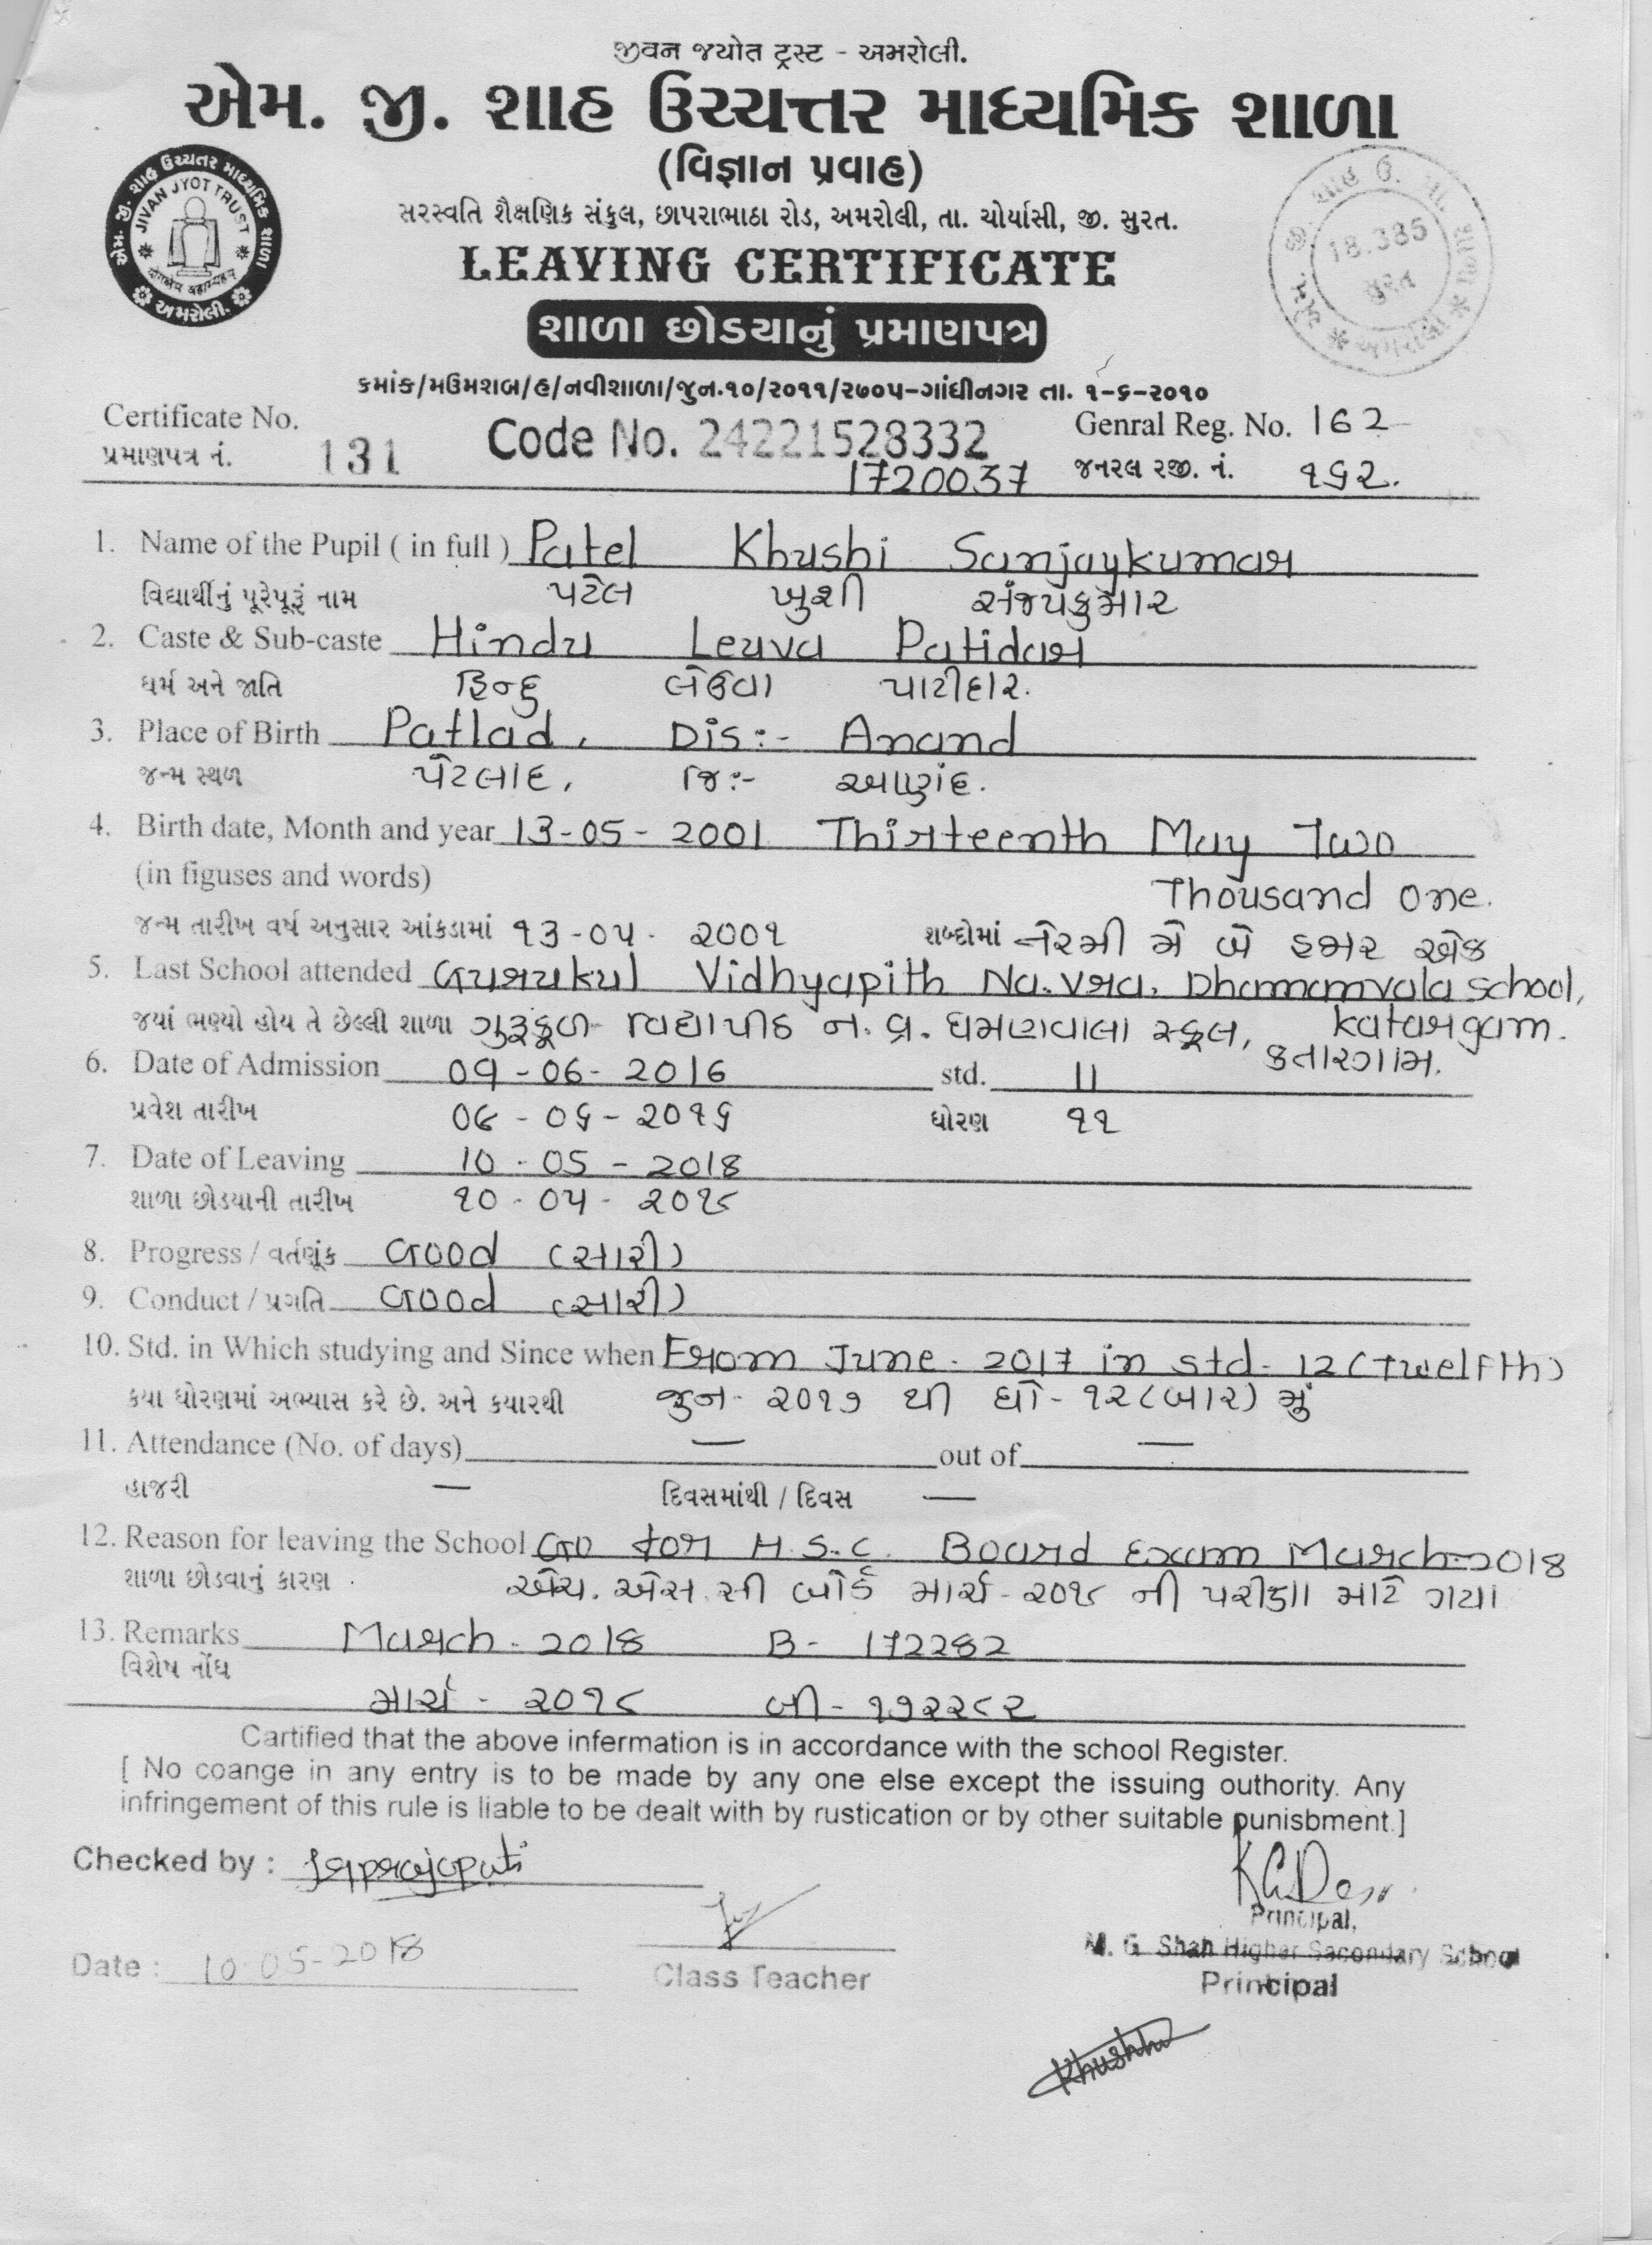 જીવન જ્યોત ટ્રસ્ટ - અમરોલી.
એમ. જી. શાહ ઉચ્ચત્તર માધ્યમિક શાળા
(વિજ્ઞાન પ્રવાહ)
સરસ્વતિ શૈક્ષણિક સંકુલ, છાપરાભાઠા રોડ, અમરોલી, તા. ચોર્યાસી, જી. સુરત.
એમ. જી. શાહ ઉચ્ચતર માધ્યમિક શાળા
JIVAN JYOT TRUST
અમરોલી.
18.385
સુરત
LEAVING CERTIFICATE
શાળા છોડયાનું પ્રમાણપત્ર
કમાંક/મઉમશબ/હ/નવીશાળા/જુન.૧૦/૨૦૧૧/૨૭૦૫-ગાંધીનગર તા. ૧-૬-૨૦૧૦
Certificate No. 131 Code No. 24221528332 Genral Reg. No. 162
પ્રમાણપત્ર નં. 1720037 જનરલ રજી. નં. ૧૬૨.
1. Name of the Pupil ( in full ) Patel Khushi Sanjaykumar
વિદ્યાર્થીનું પૂરેપૂરૂં નામ પટેલ ખુશી સંજયકુમાર
2. Caste & Sub-caste Hindu Leuva Patidar
ધર્મ અને જાતિ હિન્દુ લેઉવા પાટીદાર.
3. Place of Birth Patlad, Dis:- Anand
જન્મ સ્થળ પેટલાદ, જિ:- આણંદ.
4. Birth date, Month and year 13-05-2001 Thirteenth May Two
(in figuses and words) Thousand One.
જન્મ તારીખ વર્ષ અનુસાર આંકડામાં ૧૩-૦૫-૨૦૦૧ શબ્દોમાં તેરમી મે બે હજાર એક
5. Last School attended Gurukul Vidhyapith Na.vra. Dhamamvala school,
Katargam.
જયાં ભણ્યો હોય તે છેલ્લી શાળા ગુરૂકૂળ વિદ્યાપીઠ ન. વ્ર. ધમણવાલા સ્કૂલ,
કતારગામ.
6. Date of Admission 09-06-2016 std. 11
પ્રવેશ તારીખ ૦૯-૦૬-૨૦૧૬ ધોરણ ૧૧
7. Date of Leaving 10-05-2018
શાળા છોડયાની તારીખ ૧૦-૦૫-૨૦૧૮
8. Progress / વર્તણૂંક Good (સારી)
9. Conduct / પ્રગતિ Good (સારી)
10. Std. in Which studying and Since when From June-2017 in std-12(Twelfth)
કયા ધોરણમાં અભ્યાસ કરે છે. અને કયારથી જુન-૨૦૧૭ થી ધો-૧૨(બાર) મું
11. Attendance (No. of days) — out of —
હાજરી — દિવસમાંથી / દિવસ —
12. Reason for leaving the School Go for H.S.C. Board Exam March-2018
શાળા છોડવાનું કારણ એચ. એસ. સી બોર્ડ માર્ચ-૨૦૧૮ ની પરીક્ષા માટે ગયા
13. Remarks March-2018 B-172282
વિશેષ નોંધ
માર્ચ-૨૦૧૮ બી-૧૭૨૨૮૨
Cartified that the above infermation is in accordance with the school Register.
[ No coange in any entry is to be made by any one else except the issuing outhority. Any
infringement of this rule is liable to be dealt with by rustication or by other suitable punisbment.]
Checked by :
Principal,
M. G. Shah Higher Secondary School
Date : 10-05-2018 Class Teacher Principal
Khushi